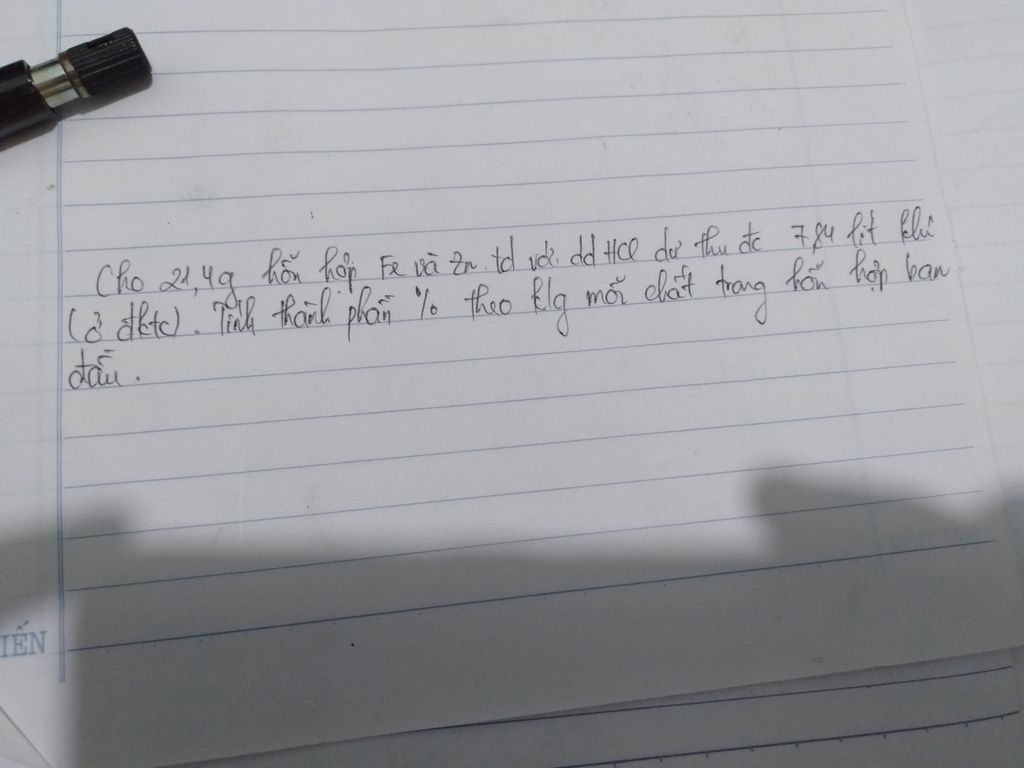 Cho 21,4g hỗn hợp Fe và Zn td với dd HCl dư thu đc 7,84 lít khí
(ở đktc). Tính thành phần % theo klg mỗi chất trong hỗn hợp ban
đầu.
IẾN